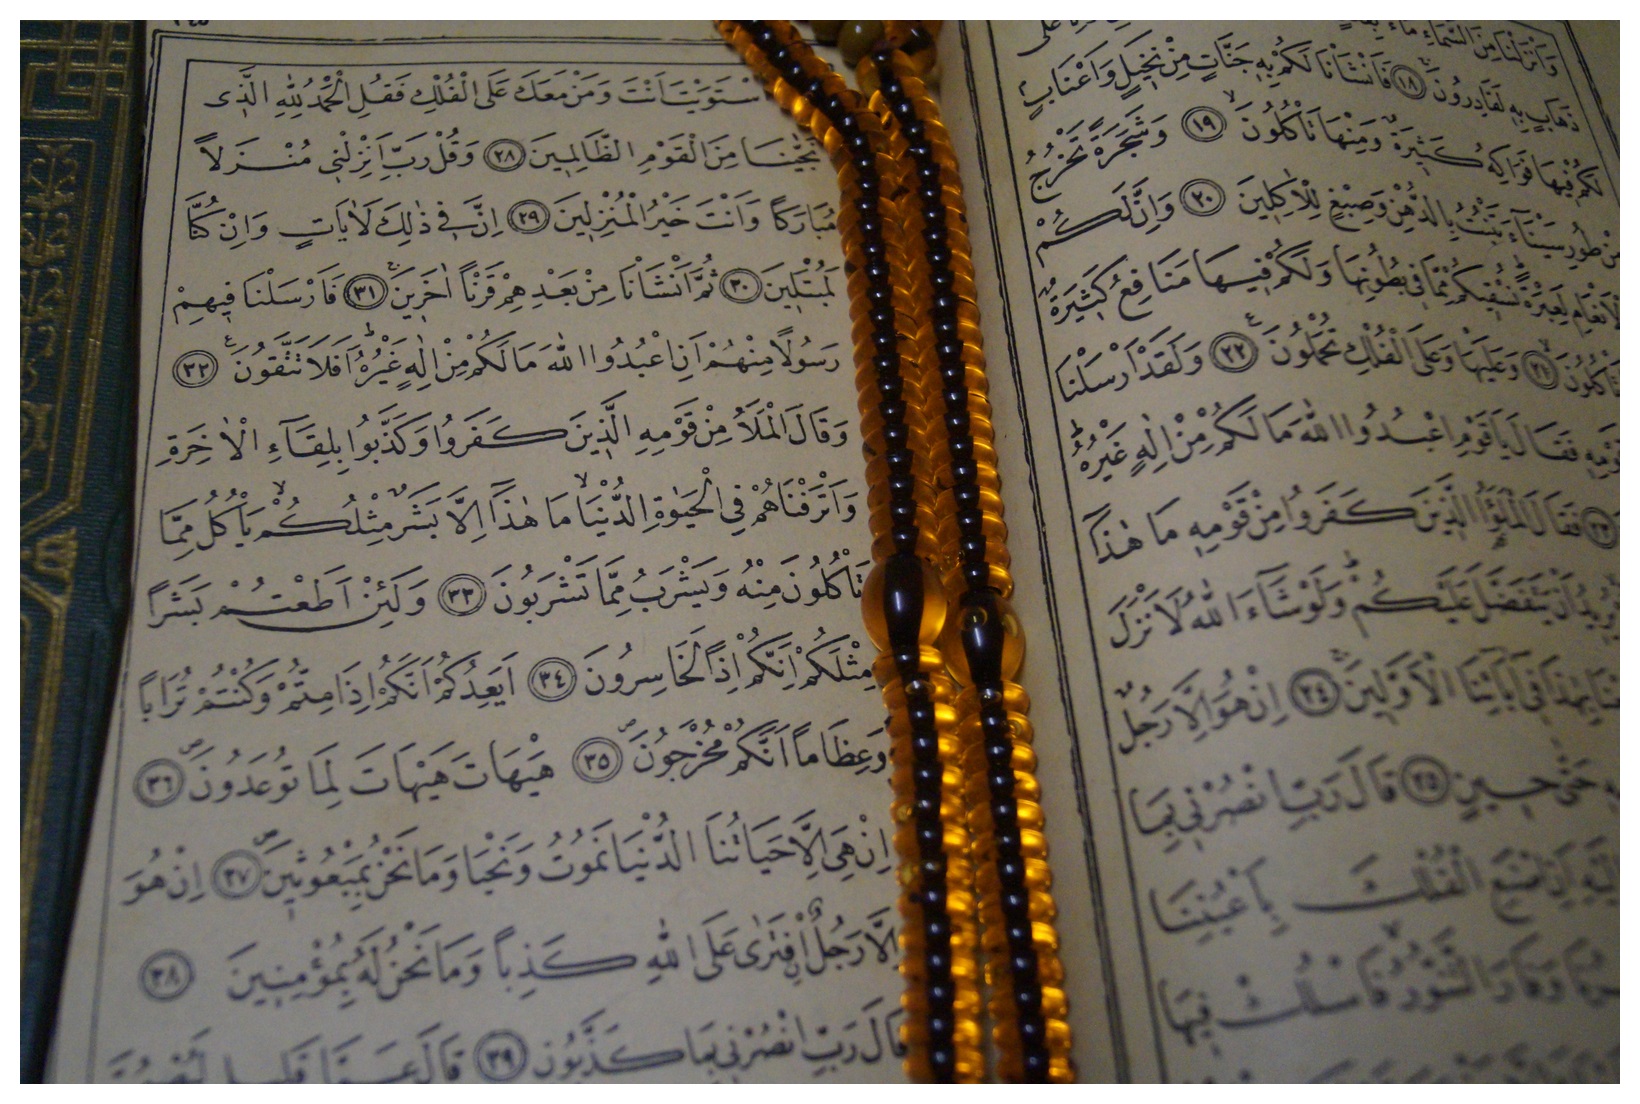 وَاَنْزَلْنَا مِنَ السَّمَاءِ مَاءً بِقَدَرٍ
ذَهَابٍ بِهِ لَقَادِرُونَ ﴿١٨﴾ فَاَنْشَاْنَا لَكُمْ بِهِ جَنَّاتٍ مِنْ نَخِيلٍ وَاَعْنَابٍ
لَكُمْ فِيهَا فَوَاكِهُ كَثِيرَةٌ وَمِنْهَا تَاْكُلُونَ ﴿١٩﴾ وَشَجَرَةً تَخْرُجُ
مِنْ طُورِ سَيْنَاءَ تَنْبُتُ بِالدُّهْنِ وَصِبْغٍ لِلْاٰكِلِينَ ﴿٢٠﴾ وَاِنَّ لَكُمْ
الْاَنْعَامِ لَعِبْرَةً نُسْقِيكُمْ مِمَّا فِي بُطُونِهَا وَلَكُمْ فِيهَا مَنَافِعُ كَثِيرَةٌ
تَاْكُلُونَ ﴿٢١﴾ وَعَلَيْهَا وَعَلَى الْفُلْكِ تُحْمَلُونَ ﴿٢٢﴾ وَلَقَدْ اَرْسَلْنَا
قَوْمِهِ فَقَالَ يَاقَوْمِ اعْبُدُوا اللّٰهَ مَا لَكُمْ مِنْ اِلٰهٍ غَيْرُهُ
﴿٢٣﴾ فَقَالَ الْمَلَؤُا الَّذِينَ كَفَرُوا مِنْ قَوْمِهِ مَا هٰذَا
يُرِيدُ اَنْ يَتَفَضَّلَ عَلَيْكُمْ وَلَوْ شَاءَ اللّٰهُ لَاَنْزَلَ
بِهٰذَا فِي اٰبَائِنَا الْاَوَّلِينَ ﴿٢٤﴾ اِنْ هُوَ اِلَّا رَجُلٌ
بِهِ حَتّٰى حِينٍ ﴿٢٥﴾ قَالَ رَبِّ انْصُرْنِي بِمَا
اِلَيْهِ اَنِ اصْنَعِ الْفُلْكَ بِاَعْيُنِنَا
وَفَارَ التَّنُّورُ فَاسْلُكْ فِيهَا
اسْتَوَيْتَ اَنْتَ وَمَنْ مَعَكَ عَلَى الْفُلْكِ فَقُلِ الْحَمْدُ لِلّٰهِ الَّذِي
نَجّٰينَا مِنَ الْقَوْمِ الظَّالِمِينَ ﴿٢٨﴾ وَقُلْ رَبِّ اَنْزِلْنِي مُنْزَلًا
مُبَارَكًا وَاَنْتَ خَيْرُ الْمُنْزِلِينَ ﴿٢٩﴾ اِنَّ فِي ذٰلِكَ لَاٰيَاتٍ وَاِنْ كُنَّا
لَمُبْتَلِينَ ﴿٣٠﴾ ثُمَّ اَنْشَاْنَا مِنْ بَعْدِهِمْ قَرْنًا اٰخَرِينَ ﴿٣١﴾ فَاَرْسَلْنَا فِيهِمْ
رَسُولًا مِنْهُمْ اَنِ اعْبُدُوا اللّٰهَ مَا لَكُمْ مِنْ اِلٰهٍ غَيْرُهُ اَفَلَا تَتَّقُونَ ﴿٣٢﴾
وَقَالَ الْمَلَاُ مِنْ قَوْمِهِ الَّذِينَ كَفَرُوا وَكَذَّبُوا بِلِقَاءِ الْاٰخِرَةِ
وَاَتْرَفْنَاهُمْ فِي الْحَيٰوةِ الدُّنْيَا مَا هٰذَا اِلَّا بَشَرٌ مِثْلُكُمْ يَاْكُلُ مِمَّا
تَاْكُلُونَ مِنْهُ وَيَشْرَبُ مِمَّا تَشْرَبُونَ ﴿٣٣﴾ وَلَئِنْ اَطَعْتُمْ بَشَرًا
مِثْلَكُمْ اِنَّكُمْ اِذًا لَخَاسِرُونَ ﴿٣٤﴾ اَيَعِدُكُمْ اَنَّكُمْ اِذَا مِتُّمْ وَكُنْتُمْ تُرَابًا
وَعِظَامًا اَنَّكُمْ مُخْرَجُونَ ﴿٣٥﴾ هَيْهَاتَ هَيْهَاتَ لِمَا تُوعَدُونَ ﴿٣٦﴾
اِنْ هِيَ اِلَّا حَيَاتُنَا الدُّنْيَا نَمُوتُ وَنَحْيَا وَمَا نَحْنُ بِمَبْعُوثِينَ ﴿٣٧﴾ اِنْ هُوَ
اِلَّا رَجُلٌ افْتَرٰى عَلَى اللّٰهِ كَذِبًا وَمَا نَحْنُ لَهُ بِمُؤْمِنِينَ ﴿٣٨﴾
قَالَ رَبِّ انْصُرْنِي بِمَا كَذَّبُونِ ﴿٣٩﴾ قَالَ عَمَّا قَلِيلٍ لَيُصْبِحُنَّ